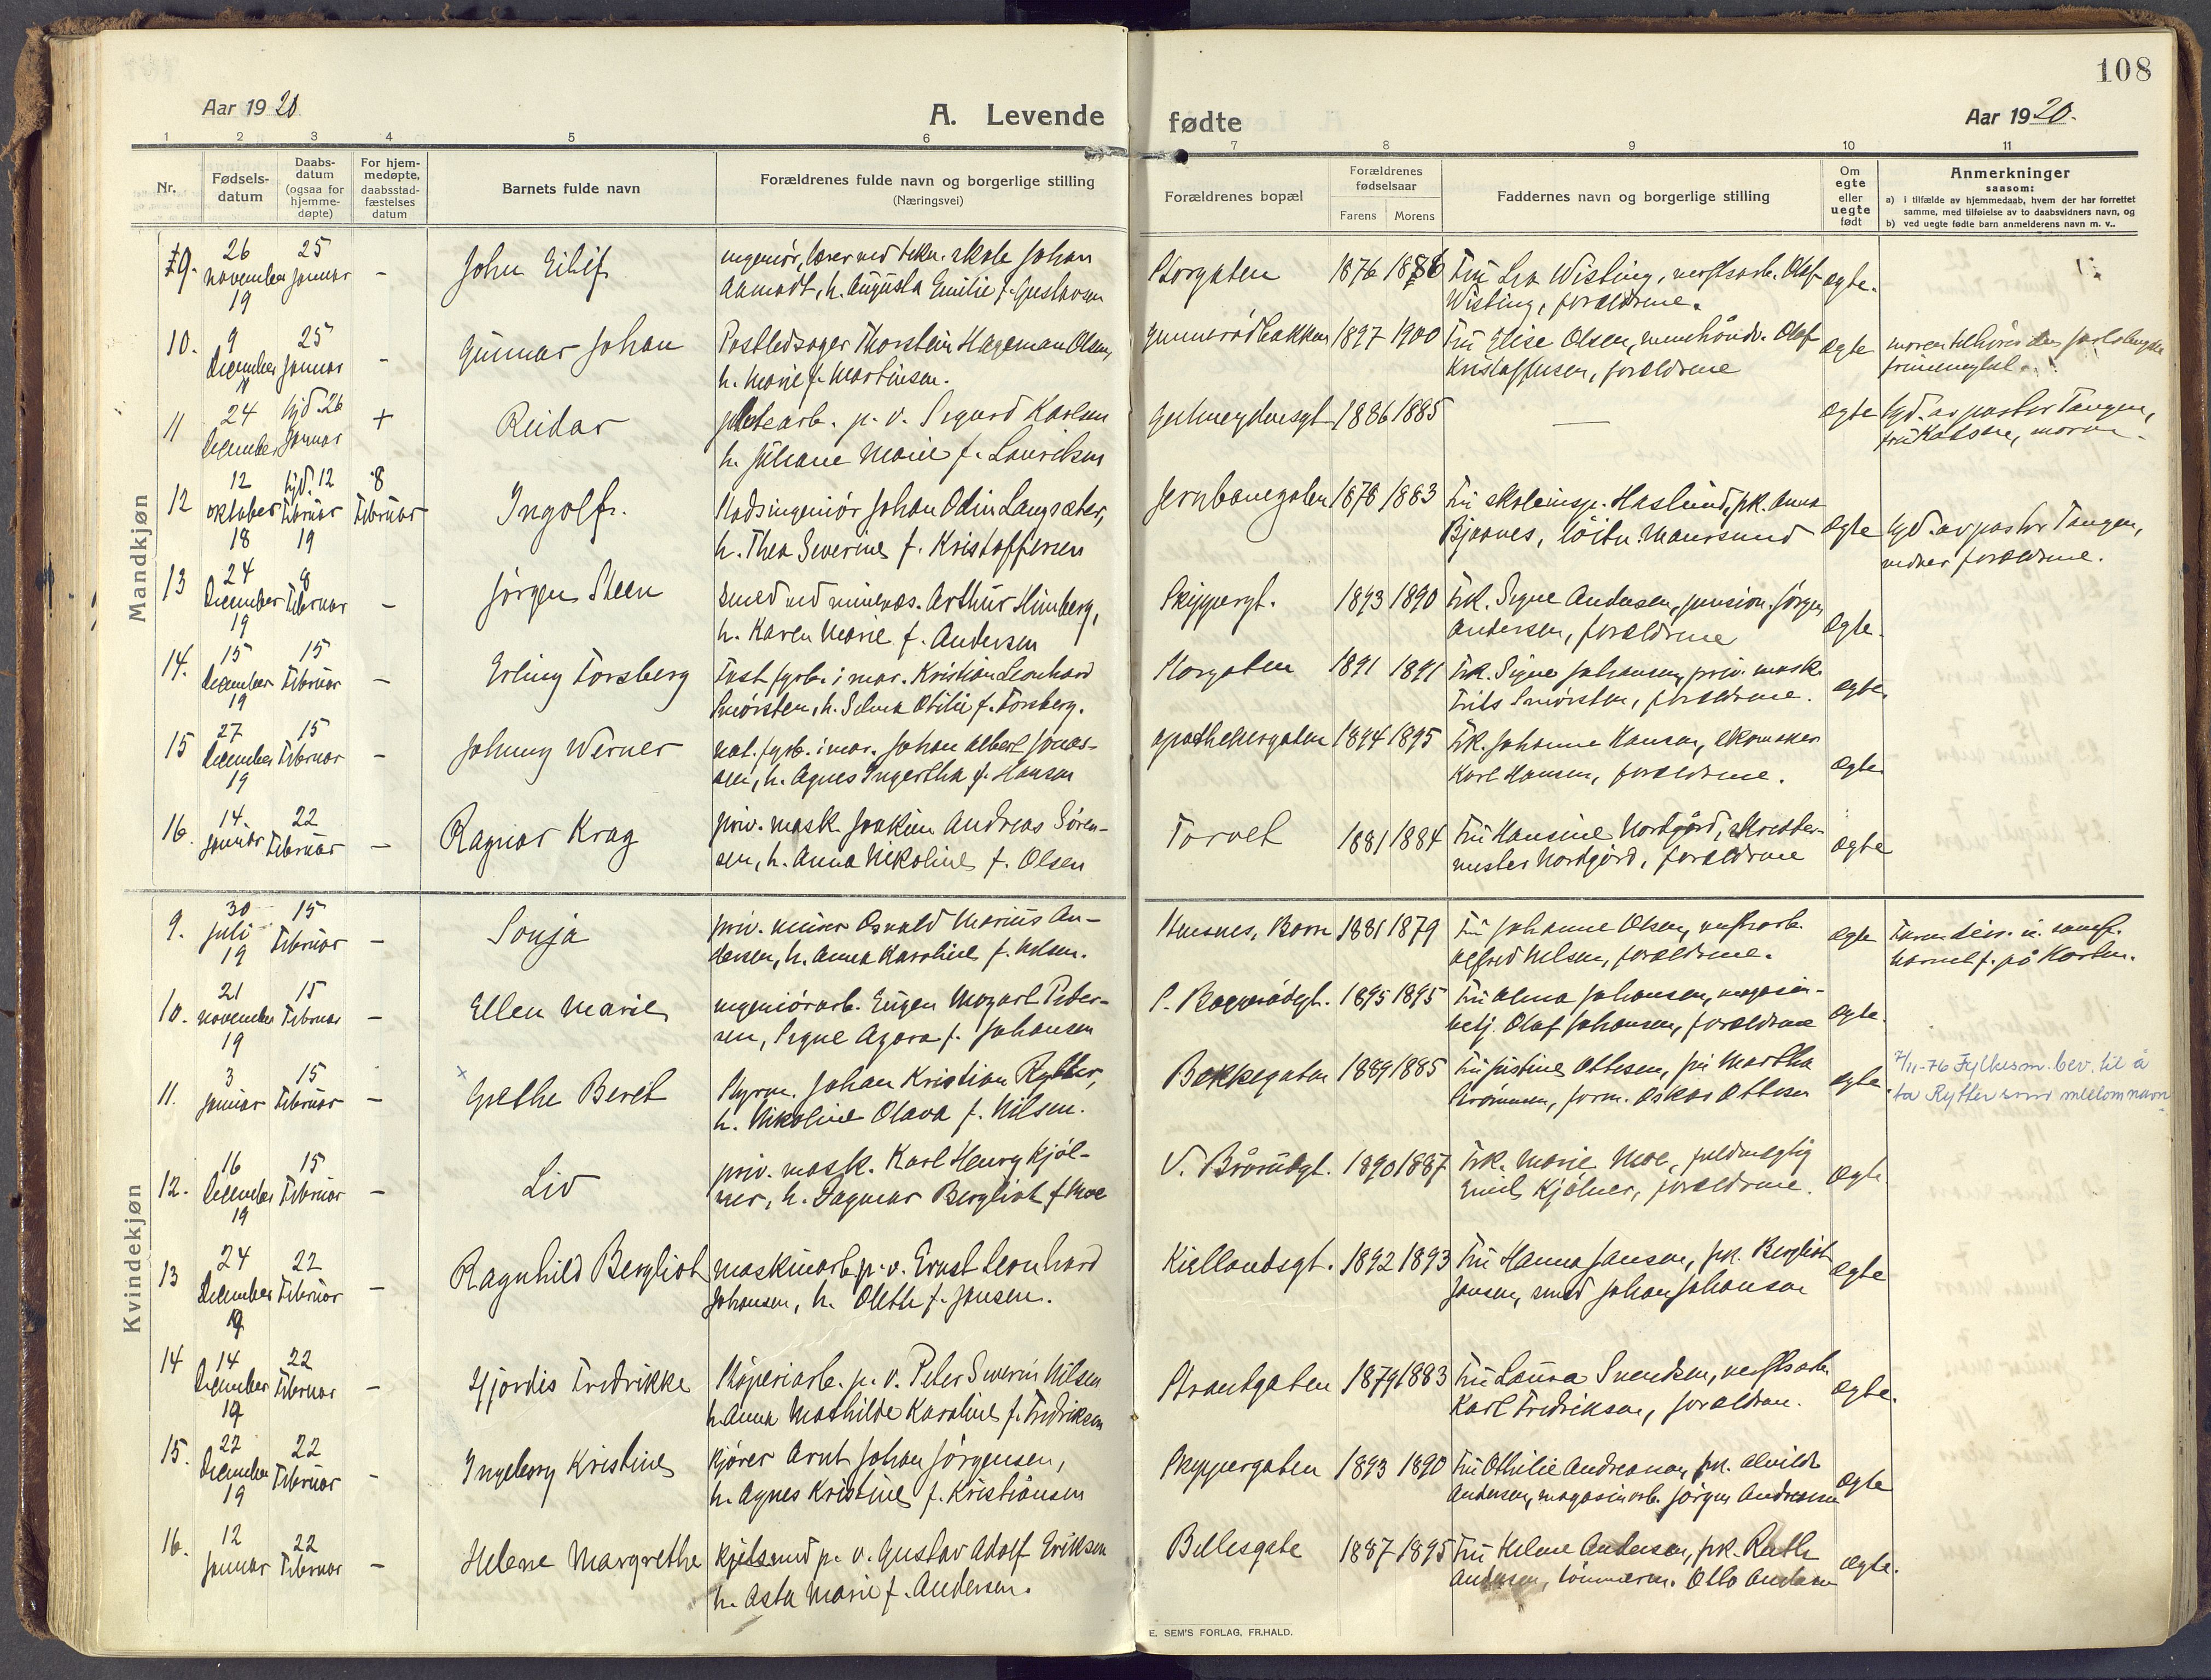 108
Aar 1920
A. Levende
fødte
Aar 1920.
1 2 3 4 5 6 7 8 9 10 11
Nr.
Fødsels-
datum
Daabs-
datum
(ogsaa for
hjemme-
døpte)
For hjem-
medøpte,
daabsstad-
fæstelses
datum
Barnets fulde navn
Forældrenes fulde navn og borgerlige stilling
(Næringsvei)
Forældrenes bopæl
Forældrenes
fødselsaar
Farens Morens
Faddernes navn og borgerlige stilling
Om
egte
eller
uegte
født
Anmerkninger
saasom:
a) i tilfælde av hjemmedaab, hvem der har forrettet
samme, med tilføielse av to daabsvidners navn, og
b) ved uegte fødte barn anmelderens navn m. v..
Mandkjøn
9. 26 november 19 25 januar - John Eilif
ingeniør, lærer ved tekn. skole Johan
Aamodt, h. Augusta Emilie f. Gustavsen
Storgaten 1876 1886 Fru Lra Wisting, verftsarb. Olaf
Wisting, forældrene. egte.
10. 9 december 19 25 januar - Gunnar Johan
Postledsager Thorstein Hageman Olsen,
h. Marie f. Martinsen.
Gunnerødbakken 1897 1900 Fru Elise Olsen, Olaf
Kristoffersen, forældrene egte
moren tilhører den
frimenighet.
11 24 december hjd. 26 januar + Reidar
platearb. p. v. Sigurd Karlsen
h. Juliane Marie f. Lauritsen
1886 1885 — egte
hjd. av pastor Tangen,
moren.
12 12 oktober 18 hjd. 12 februar 19 8 februar Ingolf.
Stadsingeniør Johan Odin Langsæter,
h. Thea Severine f. Kristoffersen
Jernbanegaten 1878 1883 Fru skoleinsp. Haslund, frk. Anna
Bjaanes, løitn. Maursund egte
hjd. av pastor Tangen,
vidner forældrene.
13 24 december 19 8 februar - Jørgen Steen
Smed ved minevæs. Arthur Himberg,
h. Karen Marie f. Andersen
Skippergt. 1893 1890 Frk. Signe Andersen, pension. Jørgen
Andersen, forældrene egte.
14. 15 december 19 15 februar - Erling Forsberg
Fast fyrb. i mar. Kristian Leonhard
Smørsten, h. Selma Otilie f. Forsberg.
Storgaten 1891 1891 Frk. Signe Johansen, priv. mask.
Frits Smørsten, forældrene. egte.
15 27 december 19 15 februar - Johnny Werner
kat. fyrb. i mar. Johan Albert Jonas-
sen, h. Agnes Ingertha f. Hansen
Apothekergaten 1894 1895 Frk. Johanne Hansen, skomaker
Karl Hansen, forældrene. egte
16. 14. januar 22 februar - Ragnar Krag
priv. mask. Joakim Andreas Søren-
sen, h. Anna Nikoline f. Olsen
Torvet 1881 1884 Fru Hansine Nordgård, skrædder-
mester Nordgård, forældrene egte
Kvindekjøn
9. 30 juli 19 15 februar - Sonja
priv. murer Osvald Marius An-
dersen, h. Anna Karoline f. Nilsen.
Stensnes, Borre 1881 1879 Fru Johanne Olsen, verftsarb.
Alfred Nilsen, forældrene. egte
barnet f. på Karlsv.
10. 21 november 19 15 februar - Ellen Marie
ingeniørarb. Eugen Mozart Peder-
sen, Signe Agora f. Johansen
P. Bøgerødgt. 1895 1895 Fru Alma Johansen, magasin-
betj. Olaf Johansen, forældrene egte.
11. 3 januar 15 februar - x Grethe Beret
Styrm. Johan Kristian Rytter,
h. Nikoline Olava f. Nilsen.
Bekkegaten 1889 1885 Fru Justine Ottesen, fru Martha
Strømmen, form. Oskar Ottesen egte
7/11-76 Fylkesm. bev. til å
ta Rytter som mellomnavn
12. 16 december 19 15 februar - Liv
priv. mask. Karl Henry Kjøl-
ner, h. Dagmar Bergliot f. Moe
V. Brårudgt. 1890 1887 Frk. Marie Moe, fuldmegtig
Emil Kjølner, forældrene. egte
13 24 december 19 22 februar - Ragnhild Bergliot
maskinarb. p. v. Ernst Leonhard
Johansen, h. Oleth f. Jansen.
Kiellandsgt. 1892 1893 Fru Hanna Jansen, frk. Bergliot
Jansen, smed Johan Johansen egte
14 14 december 19 22 februar - Hjørdis Fredrikke
Støperiarb. p. v. Peter Severin Nilsen
h. Anna Mathilde Karoline f. Fredriksen
Strandgaten 1879 1883 Fru Laura Svendsen, verftsarb.
Karl Fredriksen, forældren. egte.
15. 22 december 19 22 februar - Ingeborg Kristine
Kjører Arnt Johan Jørgensen,
h. Agnes Kristine f. Kristiansen
Skippergaten 1893 1890 Fru Othilie Andreasen, frk. Alvilde
Andersen, magasinarb. Jørgen Andresen egte
16. 12 januar 22 februar - Helene Margrethe
Kjelsmed p. v. Gustav Adolf Eriksen
h. Asta Marie f. Andersen.
Billesgate 1887 1895 Fru Helene Andersen, frk. Ruth
Andersen, tømmerm. Otto Andersen egte.
E. SEM'S FORLAG, FR.HALD.